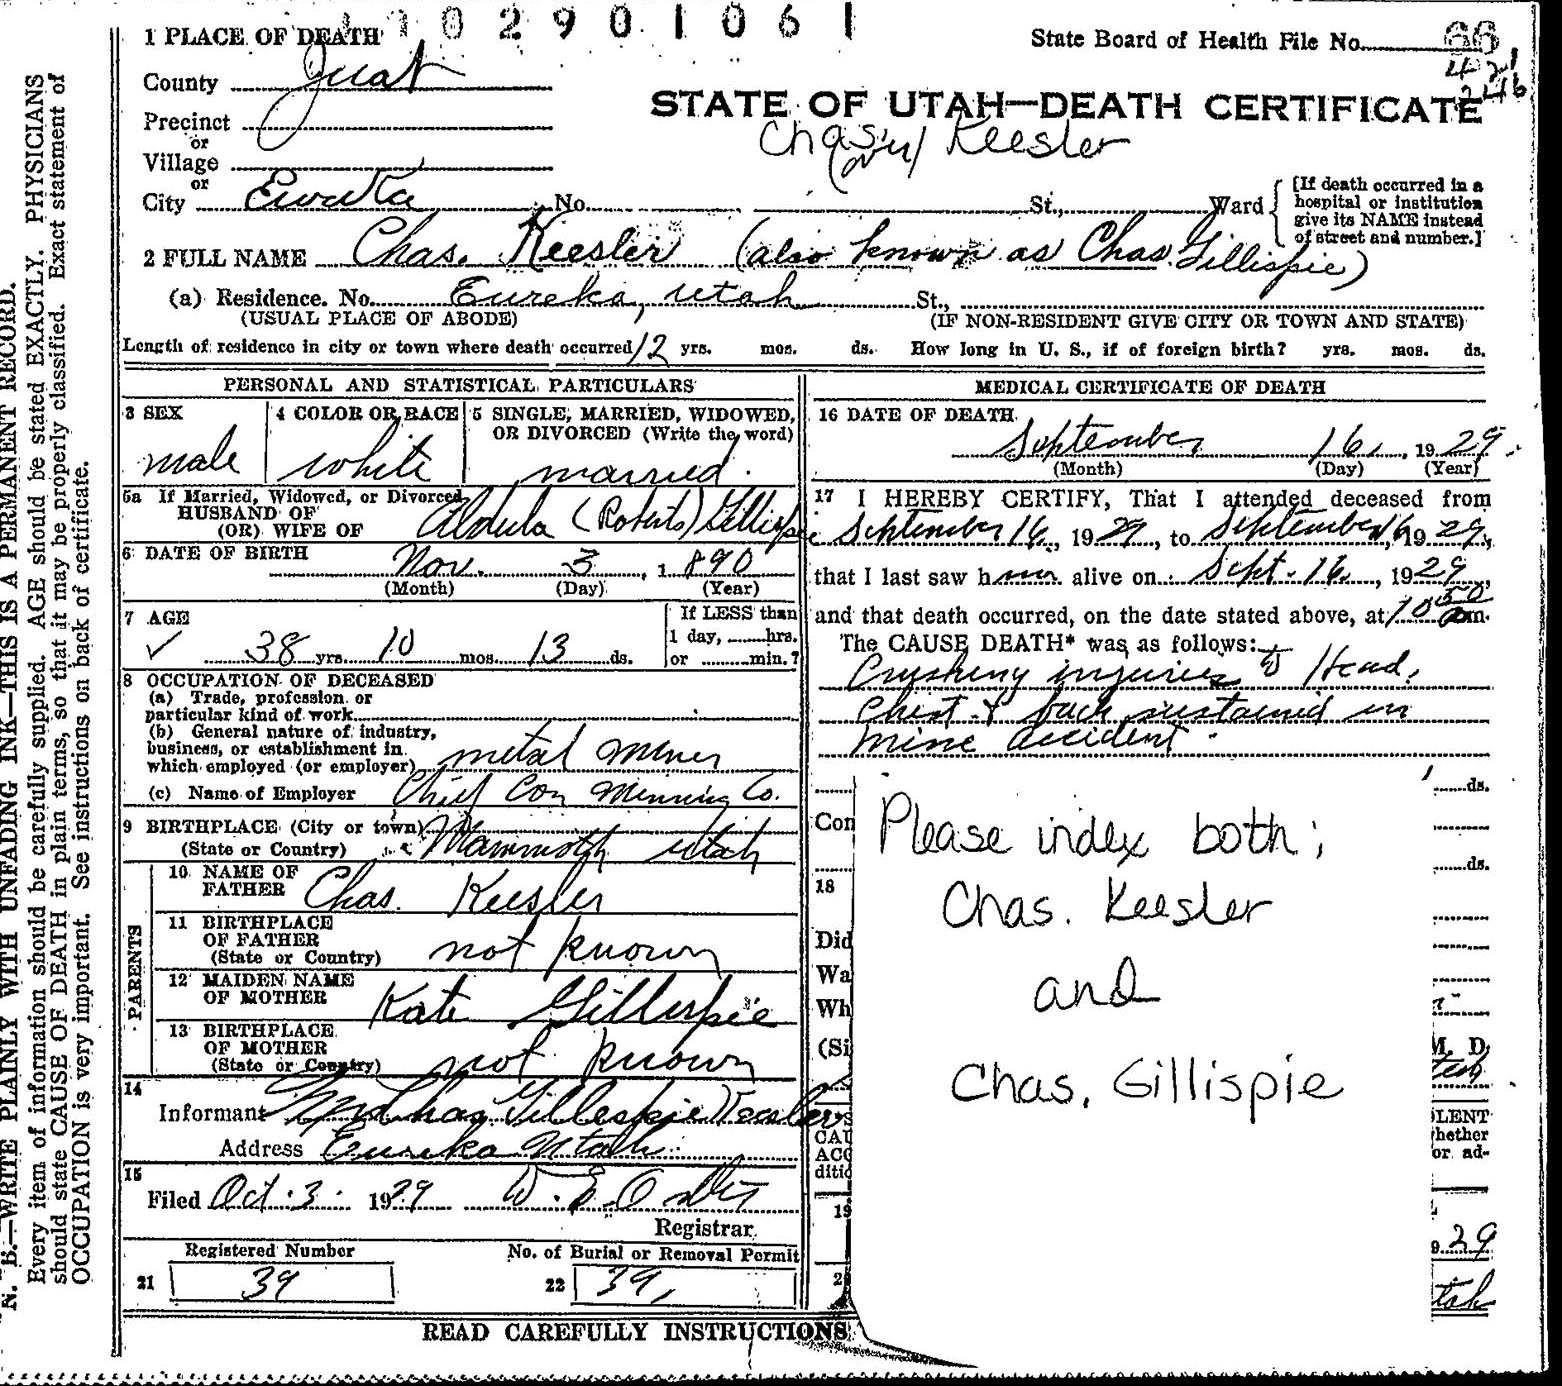 2901061
1 PLACE OF DEATH
State Board of Health File No. 66
421
246
County Juab
Precinct
or
Village
or
STATE OF UTAH—DEATH CERTIFICATE
Chas. Keesler
City Eureka No. St., Ward
[If death occurred in a
hospital or institution
give its NAME instead
of street and number.]
2 FULL NAME Chas. Keesler (also known as Chas. Gillispie)
(a) Residence. No. Eureka, Utah St.,
(USUAL PLACE OF ABODE) (IF NON-RESIDENT GIVE CITY OR TOWN AND STATE)
Length of residence in city or town where death occurred 12 yrs. mos. ds. How long in U. S., if of foreign birth? yrs. mos. ds.
PERSONAL AND STATISTICAL PARTICULARS
3 SEX
male
4 COLOR OR RACE
white
5 SINGLE, MARRIED, WIDOWED,
OR DIVORCED (Write the word)
married.
5a If Married, Widowed, or Divorced
HUSBAND OF
(OR) WIFE OF (Roberts) Gillispie
6 DATE OF BIRTH Nov. 3, 1890
(Month) (Day) (Year)
7 AGE
38 yrs. 10 mos. 13 ds.
If LESS than
1 day, hrs.
or min.?
8 OCCUPATION OF DECEASED
(a) Trade, profession or
particular kind of work
(b) General nature of industry,
business, or establishment in
which employed (or employer) metal miner
(c) Name of Employer Chief Con Minning Co.
9 BIRTHPLACE (City or town)
(State or Country) Mammoth Utah
PARENTS
10 NAME OF
FATHER Chas. Keesler
11 BIRTHPLACE
OF FATHER
(State or Country) not known
12 MAIDEN NAME
OF MOTHER Kate Gillespie
13 BIRTHPLACE
OF MOTHER
(State or Country) not known
14
Informant Mrs Chas Gillespie Keesler
Address Eureka Utah
15
Filed Oct. 3. 1929
Registrar.
Registered Number
21 39
No. of Burial or Removal Permit
22 39,
READ CAREFULLY INSTRUCTIONS
MEDICAL CERTIFICATE OF DEATH
16 DATE OF DEATH
September 16, 1929.
(Month) (Day) (Year)
17 I HEREBY CERTIFY, That I attended deceased from
September 16, 1929, to September 16 1929,
that I last saw him alive on Sept. 16, 1929,
and that death occurred, on the date stated above, at 10 50 am.
The CAUSE DEATH* was as follows:
Crushing injuries to Head,
Chest & back sustained in
mine accident.
ds.
Con
ds.
18
Did
Wa
Wh
(Si
M. D.
CAU
ACC
ditio
LENT
hether
or ad-
19
29
2
Please index both;
Chas. Keesler
and
Chas. Gillispie
N. B.—WRITE PLAINLY WITH UNFADING INK—THIS IS A PERMANENT RECORD.
Every item of information should be carefully supplied. AGE should be stated EXACTLY. PHYSICIANS
should state CAUSE OF DEATH in plain terms, so that it may be properly classified. Exact statement of
OCCUPATION is very important. See instructions on back of certificate.